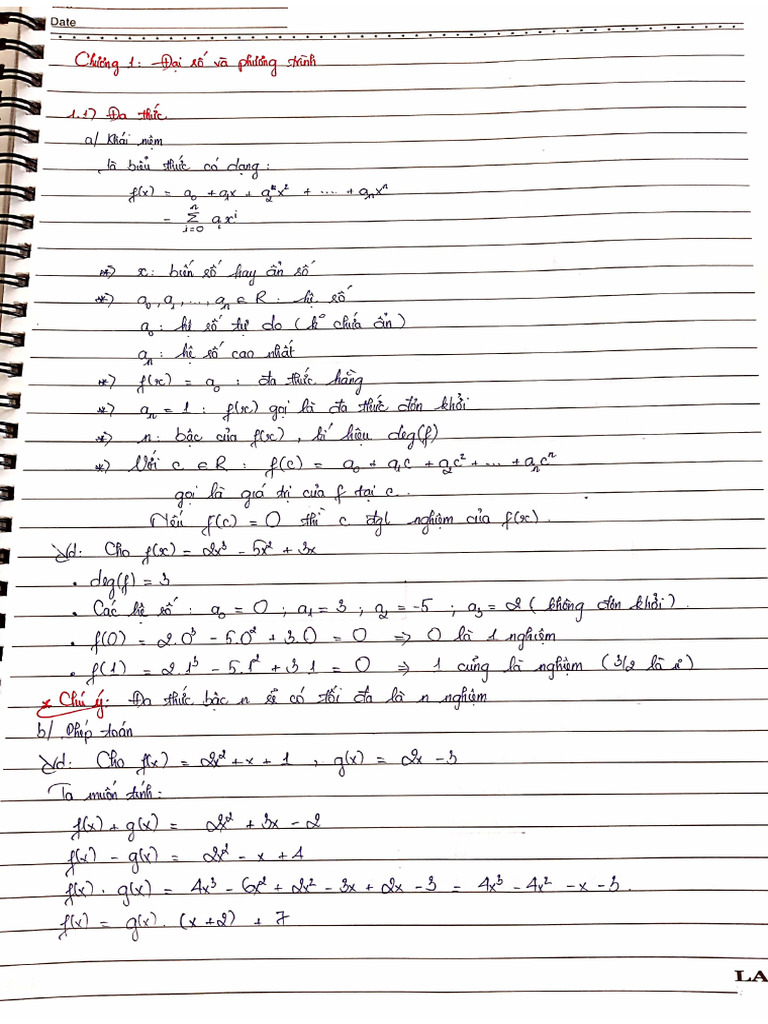 Date
Chương 1: Đại số và phương trình
1.1) Đa thức
a/ Khái niệm
Là biểu thức có dạng:
f(x) = a₀ + a₁x + a₂x² + .... + aₙxⁿ
= Σⁿᵢ₌₀ aᵢxⁱ
*) x: biến số hay ẩn số
*) a₀, a₁, ..., aₙ ∈ R: hệ số
a₀: hệ số tự do (k° chứa ẩn)
aₙ: hệ số cao nhất
*) f(x) = a₀ : đa thức hằng
*) aₙ = 1 : f(x) gọi là đa thức đơn khởi
*) n: bậc của f(x), kí hiệu deg(f)
*) Với c ∈ R : f(c) = a₀ + a₁c + a₂c² + ... + aₙcⁿ
gọi là giá trị của f tại c.
Nếu f(c) = 0 thì c đgl nghiệm của f(x).
Vd: Cho f(x) = 2x³ - 5x² + 3x
• deg(f) = 3
• Các hệ số : a₀ = 0 ; a₁ = 3 ; a₂ = -5 ; a₃ = 2 (không đơn khởi).
• f(0) = 2.0³ - 5.0² + 3.0 = 0 ⇒ 0 là 1 nghiệm
• f(1) = 2.1³ - 5.1² + 3.1 = 0 ⇒ 1 cũng là nghiệm (3/2 là)
* Chú ý: Đa thức bậc n sẽ có tối đa là n nghiệm
b/ Phép toán
Vd: Cho f(x) = 2x² + x + 1 , g(x) = 2x - 3
Ta muốn tính:
f(x) + g(x) = 2x² + 3x - 2
f(x) - g(x) = 2x² - x + 4
f(x) . g(x) = 4x³ - 6x² + 2x² - 3x + 2x - 3 = 4x³ - 4x² - x - 3.
f(x) = g(x) . (x+2) + 7
LA